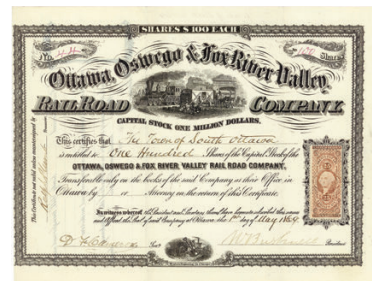 SHARES $100 EACH
No. 44
100 Shares
Ottawa, Oswego & Fox River Valley
RAIL ROAD COMPANY.
CAPITAL STOCK ONE MILLION DOLLARS.
This certifies that The Town of South Ottawa
is entitled to One Hundred Shares of the Capital Stock of the
OTTAWA, OSWEGO & FOX RIVER VALLEY RAIL ROAD COMPANY,
Transferable only on the books of the said Company at their Office in
Ottawa by or Attorney on the return of this Certificate.
In witness whereof, the President and Secretary
the Seal of said Company at Ottawa the 1st day of May 1869.
Secy
President
This Certificate not valid unless countersigned by